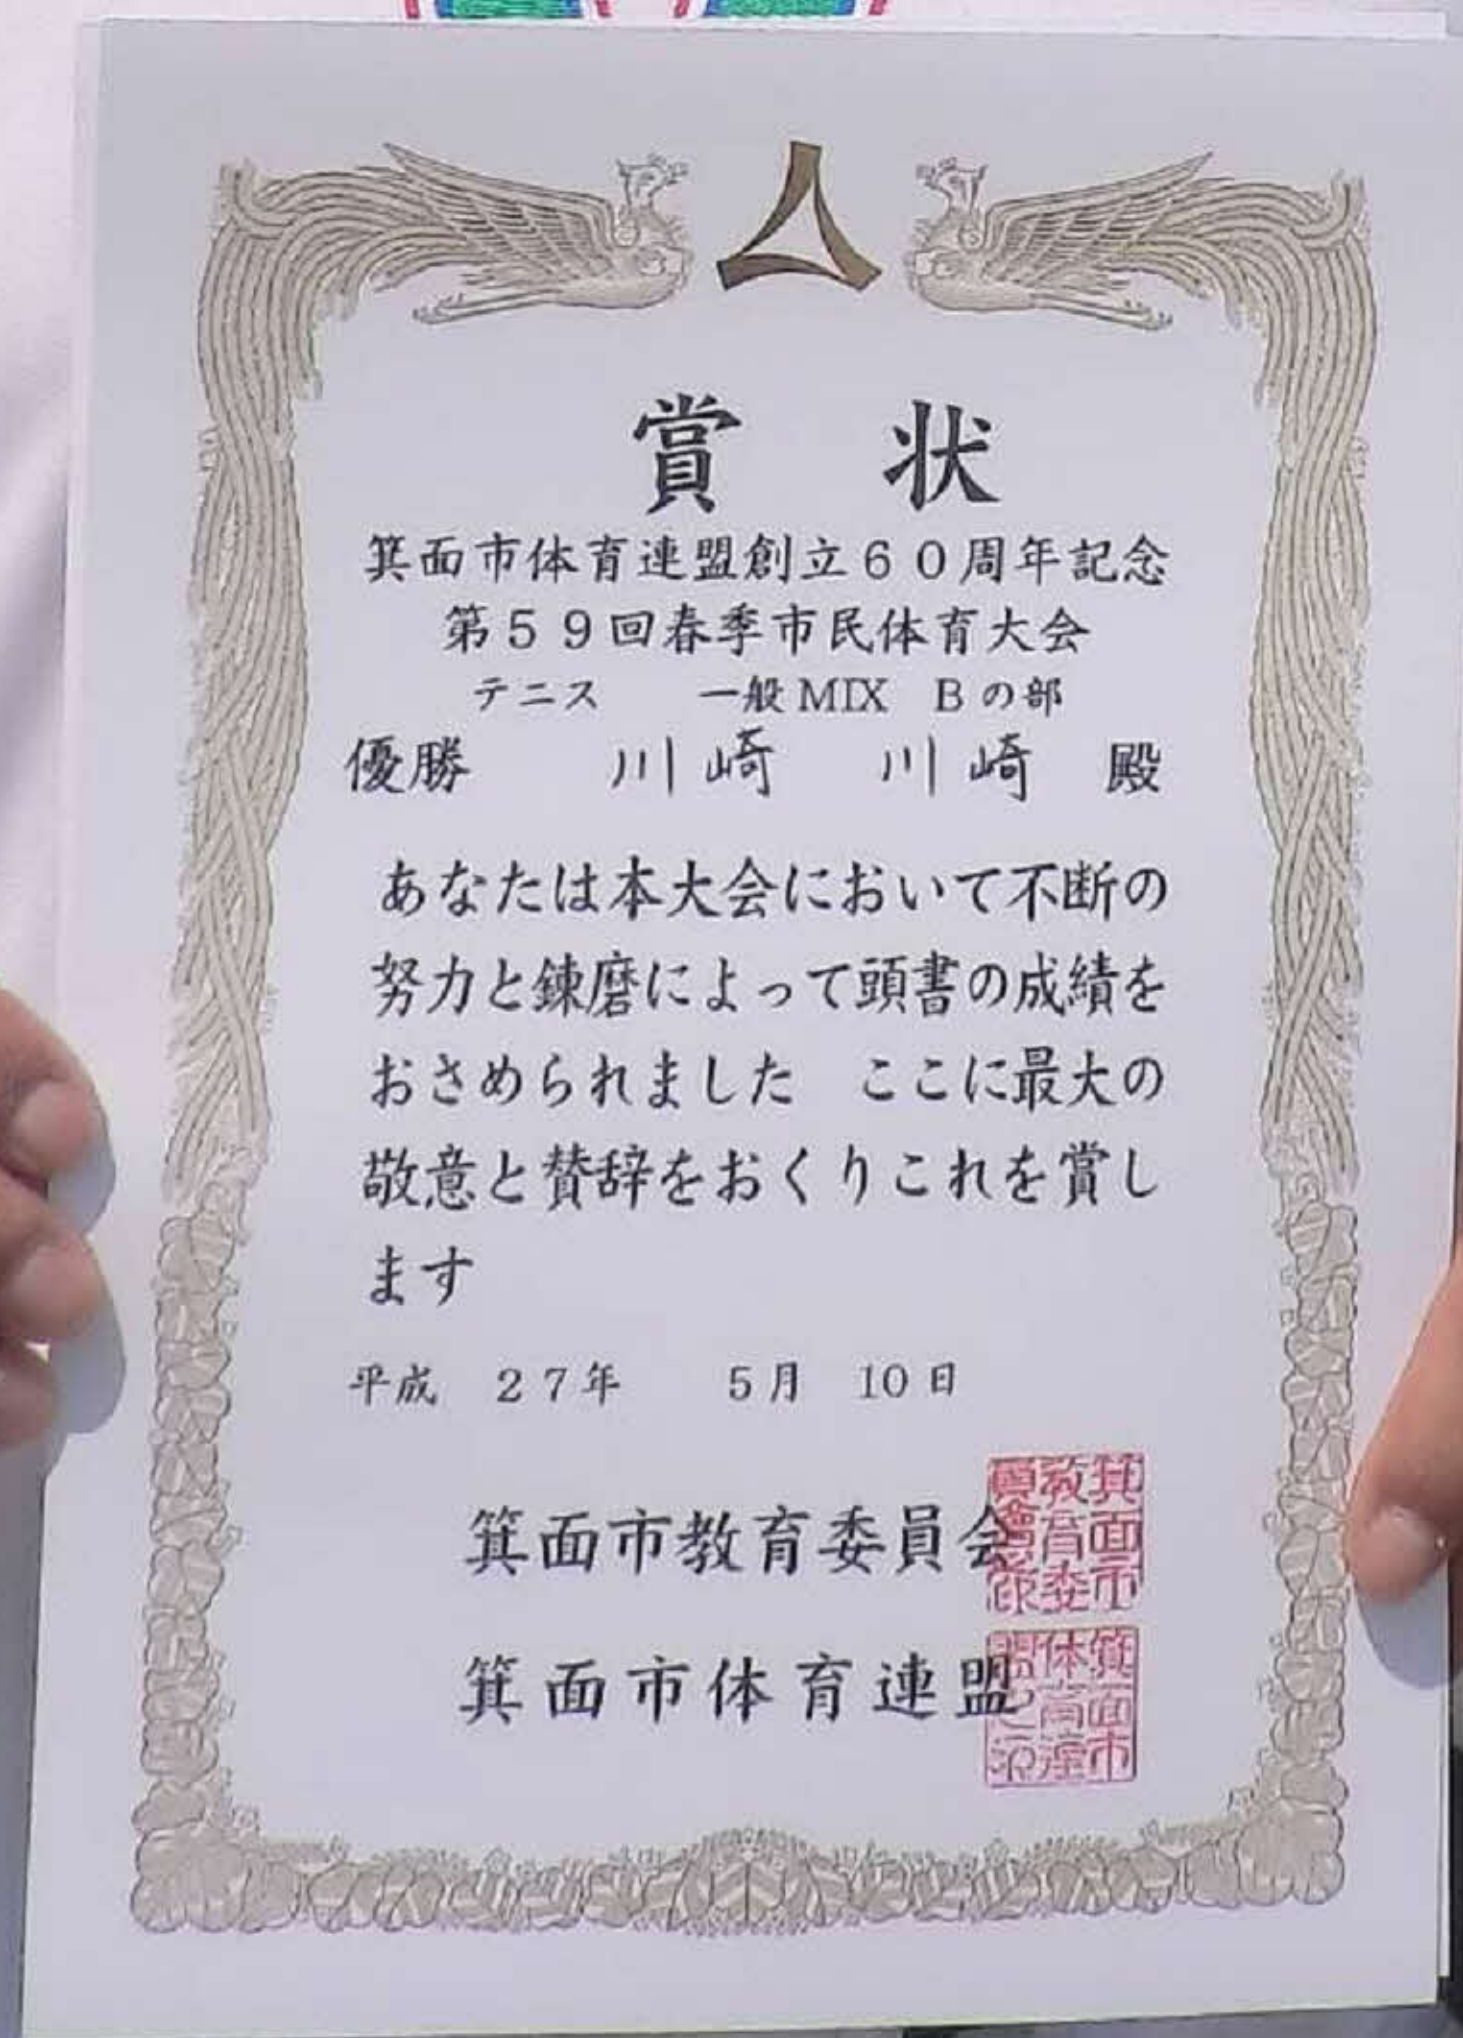 賞状
箕面市体育連盟創立60周年記念
第59回春季市民体育大会
テニス　一般MIX　Bの部
優勝　川崎　川崎　殿
あなたは本大会において不断の
努力と錬磨によって頭書の成績を
おさめられました　ここに最大の
敬意と賛辞をおくりこれを賞し
ます
平成　27年　5月　10日
箕面市教育委員会
箕面市体育連盟